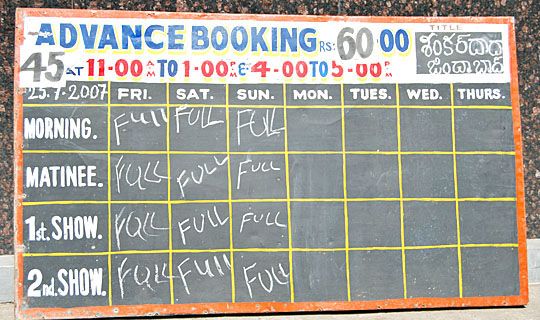 TITLE
ADVANCE BOOKING RS: 60.00
శంకర్ దాదా
45 AT 11-00 AM TO 1-00 PM & 4-00 TO 5-00 PM
జిందాబాద్
25.7.2007 FRI. SAT. SUN. MON. TUES. WED. THURS.
MORNING. Full FULL FULL
MATINEE. FULL FULL FULL
1st. SHOW. FULL FULL FULL
2nd. SHOW. FULL FUll FULL